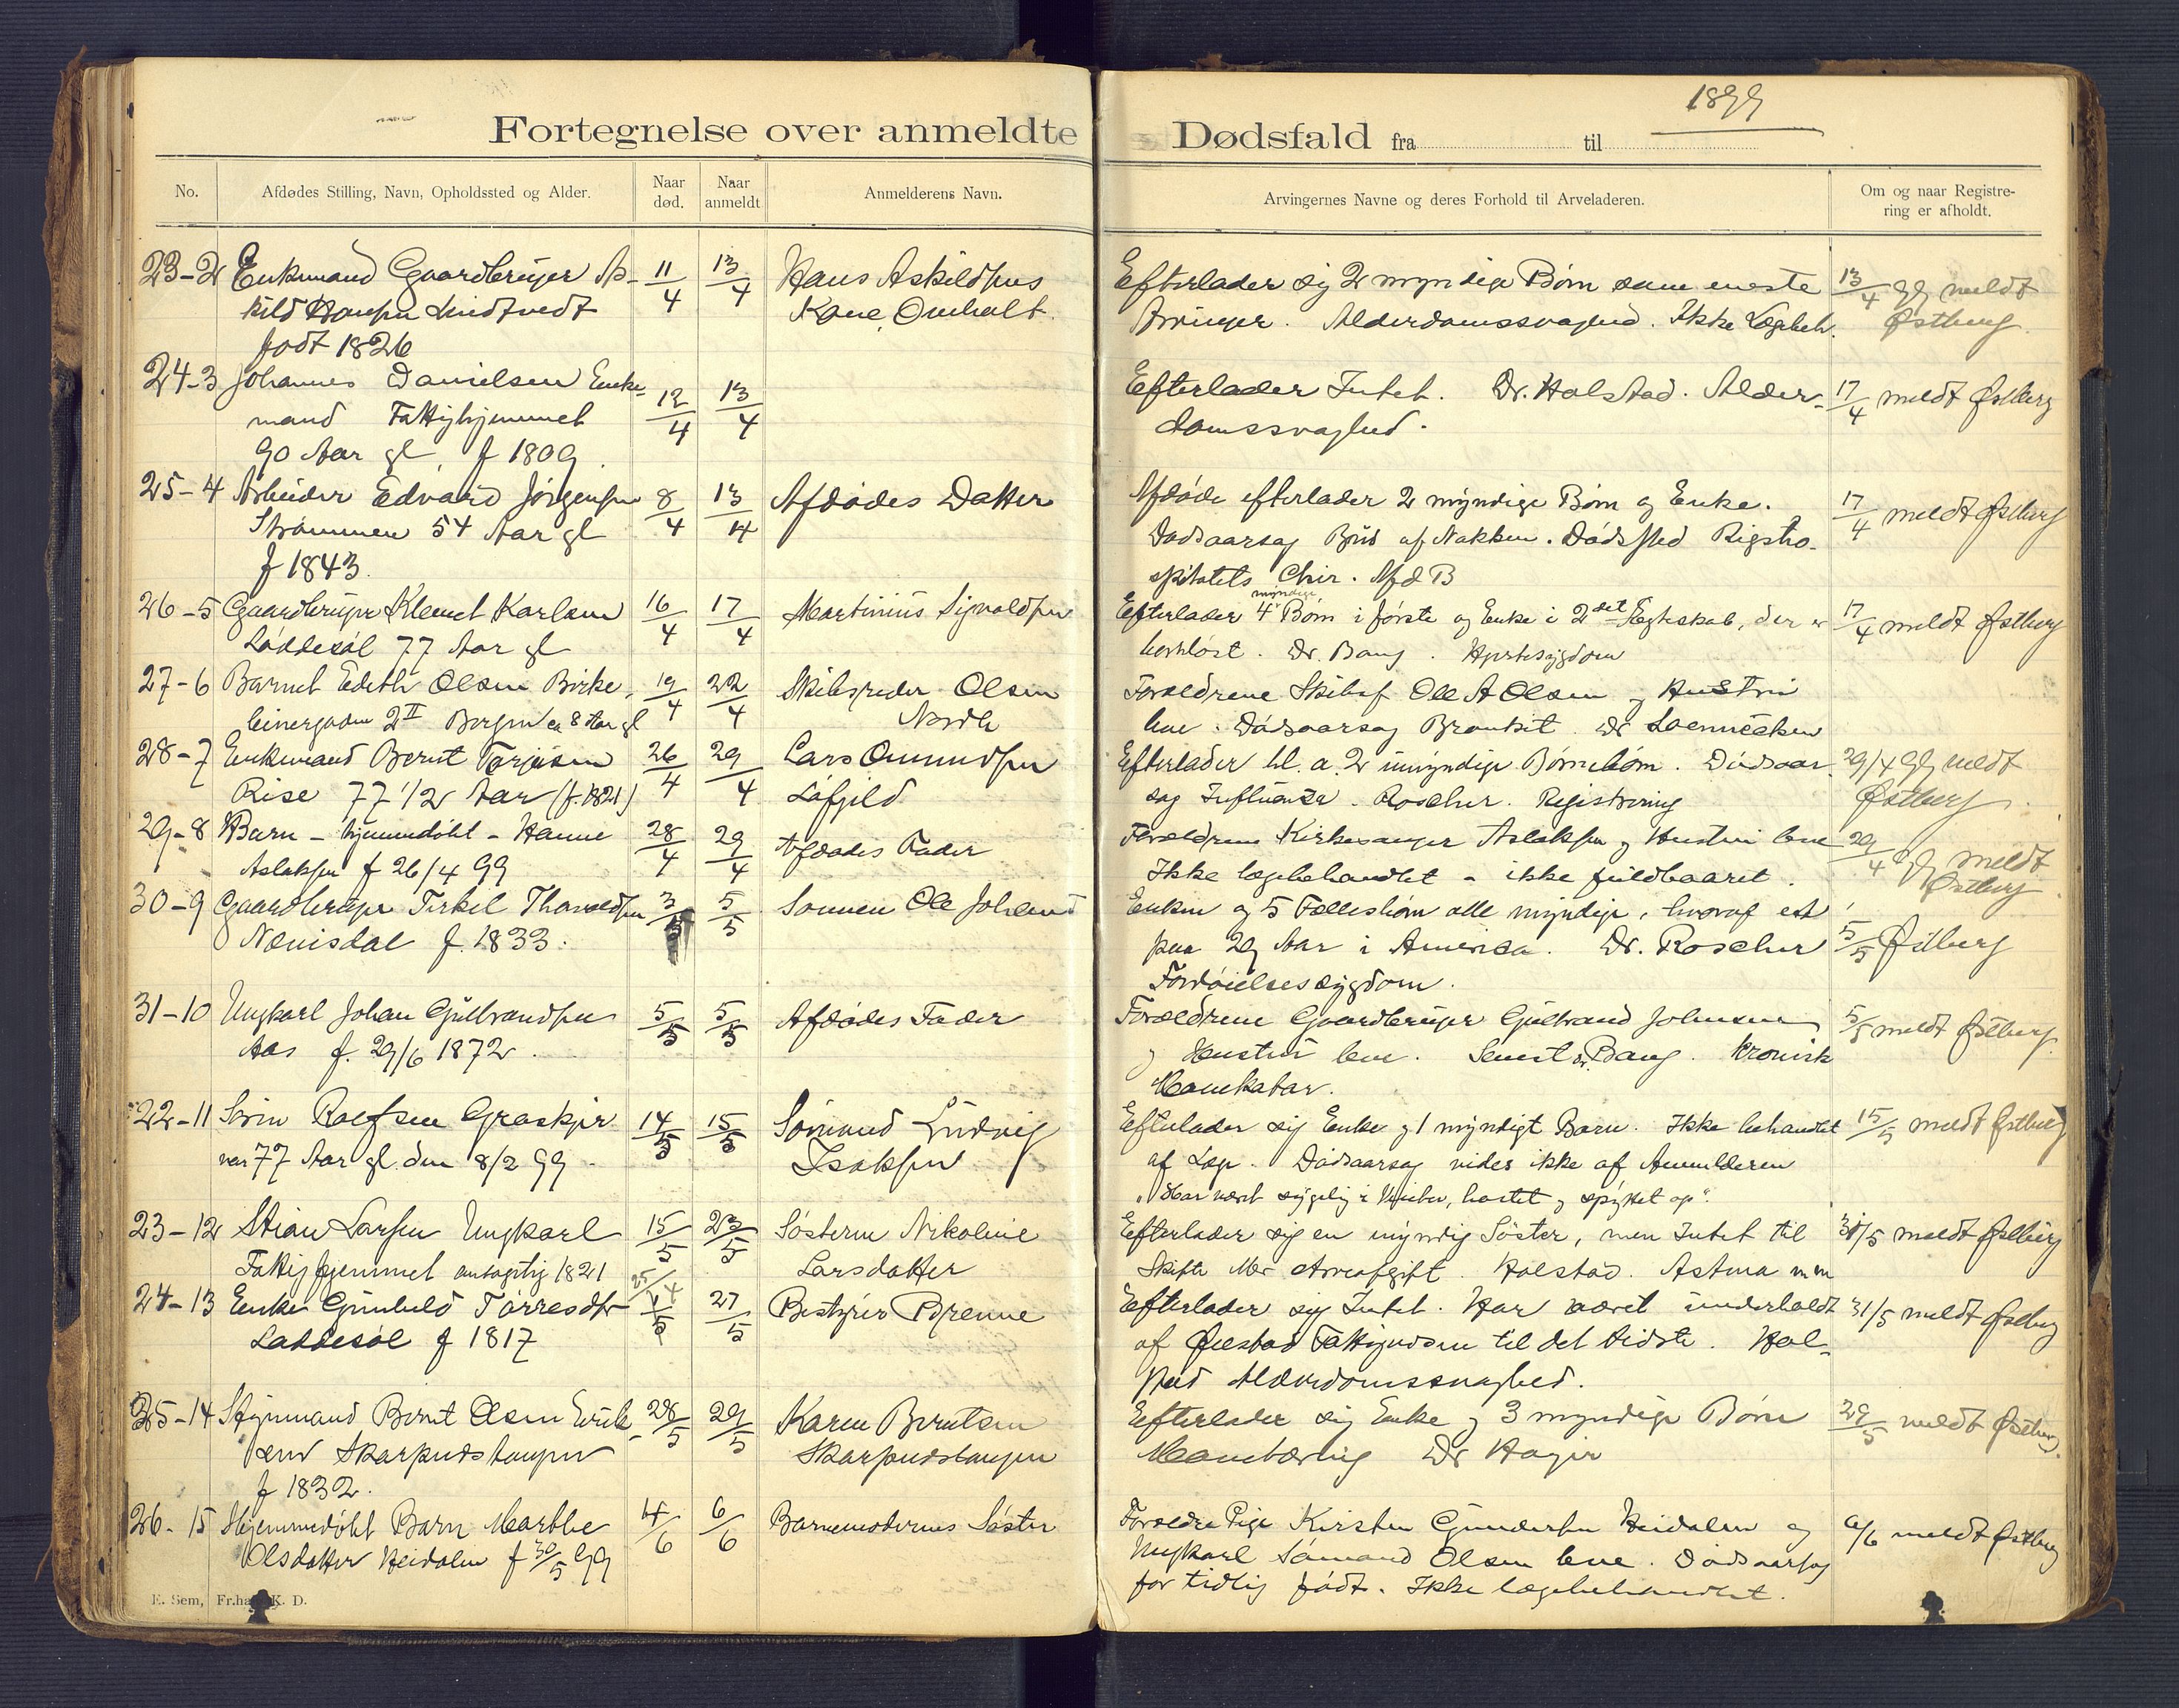 1899
Fortegnelse over anmeldte Dødsfald fra til
No. Afdødes Stilling, Navn, Opholdssted og Alder. Naar død. Naar anmeldt Anmelderens Navn. Arvingernes Navne og deres Forhold til Arveladeren. Om og naar Registrering er afholdt.
23-2 Enkemand Gaardbruger As- 11/4 13/4 Hans Askildsens Efterlader sig 2 myndige Børn som eneste 13/4 99 meldt
kild Hansen Lindtvedt Kone, Omholt. Arvinger. Alderdomssvaghed. Ikke Lægebeh. Østberg.
født 1826
24-3 Johannes Danielsen Enke- 12/4 13/4 Efterlader Intet. Dr. Halstad. Alder- 17/4 meldt Østberg
mand Fattighjemmet damssvaghed.
90 Aar gl. f 1809.
25-4 Arbeider Edvard Jörgensen 8/4 13/4 Afdödes Datter Afdöde efterlader 2 myndige Börn og Enke. 17/4 meldt Østberg
Strömmen 54 Aar gl Dødsaarsag Brud af Nakken. Dödssted Rigsho-
f 1843. spitalets Chir. Afd B
26-5 Gaardbruger Klemet Karlsen 16/4 17/4 Martinius Sigvaldsen Efterlader 4 myndige Börn i förste og Enke i 2det Ægteskab, der er 17/4 meldt Østberg
Löddesöl 77 Aar gl barnlöst. Dr. Bang. Hjertesygdom
27-6 Barnet Edith Olsen Birke- 19/4 22/4 Skibsreder Olsen Forældrene Skibsf Ole A Olsen og Hustru
beinergaden 2II Bergen ca 8 Aar gl Narth leve. Dödsaarsag Bronkit. Dr Loennecken
28-7 Enkemand Bernt Terjesen 26/4 29/4 Lars Omundsen Efterlader bl. a. 2 umyndige Børnebörn. Dødsaar- 29/4 99 meldt
Rise 77 1/2 Aar (f. 1821) Löfjeld sag Influenza. Roscher. Registrering Østberg.
29-8 Barn - hjemmedöbt - Hanne 28/4 29/4 Afdödes Fader Forældrene Kirkesanger Aslaksen og Hustru leve 29/4 99 meldt
Aslaksen f 26/4 99 Ikke lægebehandlet - ikke fuldbaaret. Østberg
30-9 Gaardbruger Terkel Thorvaldsen 3/5 5/5 Sønnen Ole Johan Enken og 5 Fællesbörn alle myndige, hvoraf et 5/5 Østberg
f. 1833. paa 29 Aar i America. Dr. Roscher
Fordöielsessygdom.
31-10 Ungkarl Johan Gulbrandsen 5/5 5/5 Afdödes Fader Forældrene Gaardbruger Gulbrand Johnsen 5/5 meldt Østberg.
Aas f. 29/6 1872. og Hustru leve. Senest Dr. Bang. Kronisk
Mavekatar.
22-11 Sörin Roefsen Graskjer 14/5 15/5 Sörmund Ludvig Efterlader sig Enke og 1 myndigt Barn. Ikke behandlet 15/5 meldt Østberg
var 77 Aar gl. den 8/2 99. Isaksen af Læge. Dødsaarsag vides ikke af Anmelderen
"Har været sygelig i Vinter, hostet og spyttet op".
23-12 Stian Larsen Ungkarl 15/5 23/5 Søsteren Nikoline Efterlader sig en myndig Söster, men Intet til 31/5 meldt Østberg
Fattighjemmet antagelig 1821 Larsdatter Skifte eller Arveafgift. Halstad. Astma m m
24-13 Enke Gunhild Tarresdtr 25/5 27/5 Bestyrer Brenne Efterlader sig Intet. Har været underholdt 31/5 meldt Østberg
Løddesöl f 1817 af Øiestad Fattigvæsen til det sidste. Hal-
stad Alderdomssvaghed.
35-14 Styrmand Bernt Olsen Erik- 28/5 29/5 Karen Berntsen Efterlader sig Enke og 3 myndige Børn 29/5 meldt Østberg
sens Skarpnestangen Skarpnestangen Dr Hagir
f 1832.
26-15 Hjemmedøbt Barn Marthe 4/6 6/6 Barnemoderens Søster Forældre Pige Kirsten Gundersen Heidalen og 6/6 meldt Østberg
Olsdatter Heidalen f 30/5 99 Ungkarl Sömand Olsen leve. Dødsaarsag
for tidlig født. Ikke lægebehandlet.
E. Sem, Fr.hald K. D.